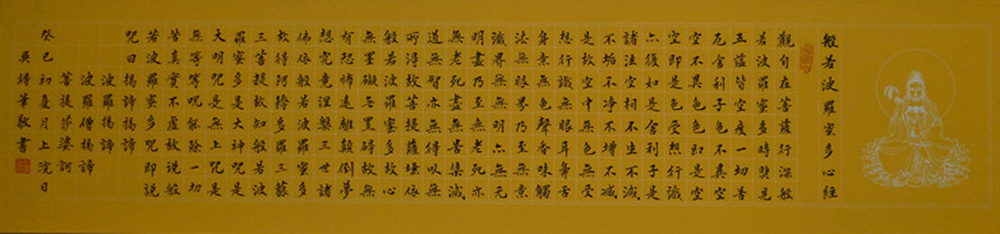 般若波羅蜜多心經
觀自在菩薩行深般
若波羅蜜多時照見
五蘊皆空度一切苦
厄舍利子色不異空
空不異色色即是空
空即是色受想行識
亦復如是舍利子是
諸法空相不生不滅
不垢不淨不增不減
是故空中無色無受
想行識無眼耳鼻舌
身意無色聲香味觸
法無眼界乃至無意
識界無無明亦無無
明盡乃至無老死亦
無老死盡無苦集滅
道無智亦無得以無
所得故菩提薩埵依
般若波羅蜜多故心
無罣礙無罣礙故無
有恐怖遠離顛倒夢
想究竟涅槃三世諸
佛依般若波羅蜜多
故得阿耨多羅三藐
三菩提故知般若波
羅蜜多是大神咒是
大明咒是無上咒是
無等等咒能除一切
苦真實不虛故說般
若波羅蜜多咒即說
咒曰揭諦揭諦
波羅揭諦
波羅僧揭諦
菩提薩婆訶
癸巳初夏月上浣日
吳得華敬書